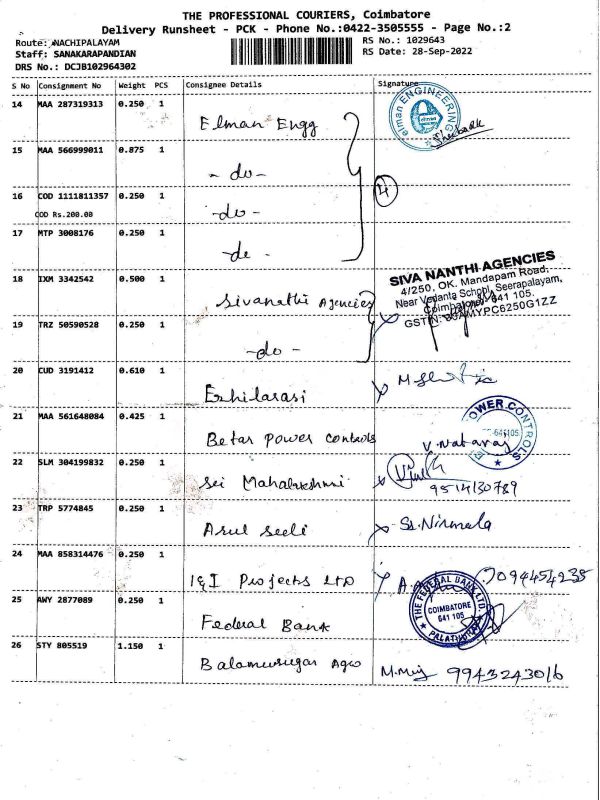 THE PROFESSIONAL COURIERS, Coimbatore
Delivery Runsheet - PCK - Phone No.:0422-3505555 - Page No.:2
Route: NACHIPALAYAM
RS No.: 1029643
Staff: SANAKARAPANDIAN
RS Date: 28-Sep-2022
DRS No.: DCJB102964302
S No Consignment No Weight PCS Consignee Details Signature
14 MAA 287319313 0.250 1 Elman Engg
elman ENGINEERING
15 MAA 566999011 0.875 1 - do -
16 COD 1111811357 0.250 1 - do - 4
COD Rs.200.00
17 MTP 3008176 0.250 1 - do -
18 IXM 3342542 0.500 1 Sivanathi Agencies
SIVA NANTHI AGENCIES
4/250, OK. Mandapam Road,
Near Vedanta School, Seerapalayam,
Coimbatore - 641 105.
19 TRZ 50590528 0.250 1 - do -
20 CUD 3191412 0.610 1 Ezhilarasi
21 MAA 561648084 0.425 1 Betar Power Controls V. Nataraj
POWER CONTROLS
22 SLM 304199832 0.250 1 Sri Mahalakshmi
9514130789
23 TRP 5774845 0.250 1 Arul Seeli S. Nirmala
24 MAA 858314476 0.250 1 I & I Projects LTD 7094454235
25 AWY 2877089 0.250 1 Federal Bank
THE FEDERAL BANK LTD.
COIMBATORE
641 105
26 STY 805519 1.150 1 Balamurugan Ago 9943243016